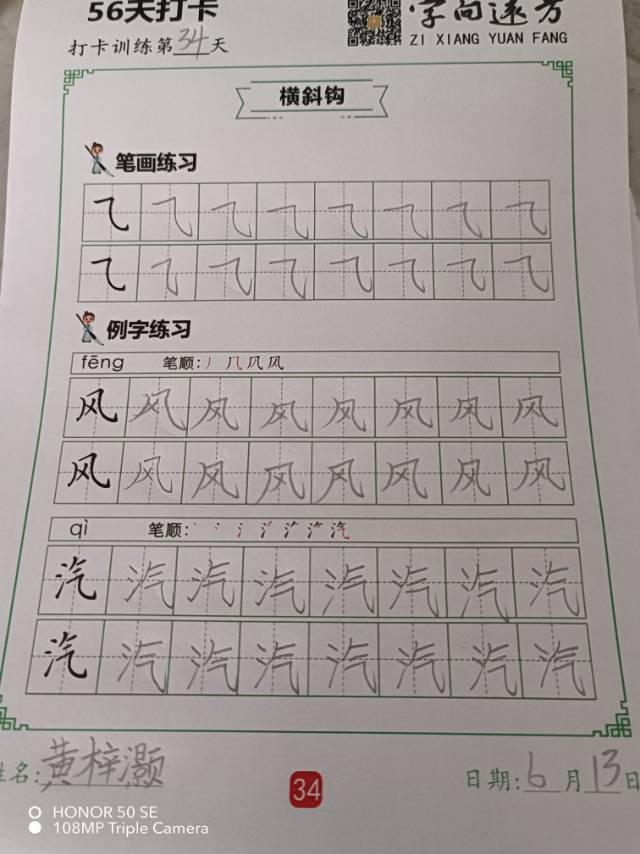 56天打卡
字向远方
打卡训练第34天
ZI XIANG YUAN FANG
横斜钩
笔画练习
⺄ ⺄ ⺄ ⺄ ⺄ ⺄ ⺄ ⺄
⺄ ⺄ ⺄ ⺄ ⺄ ⺄ ⺄ ⺄
例字练习
fēng 笔顺: 丿 几 凡 风
风 风 风 风 风 风 风 风
风 风 风 风 风 风 风 风
qì 笔顺: 丶 冫 氵 汽
汽 汽 汽 汽 汽 汽 汽 汽
汽 汽 汽 汽 汽 汽 汽 汽
姓名:黄梓灏
34
日期:6月13日
HONOR 50 SE
108MP Triple Camera